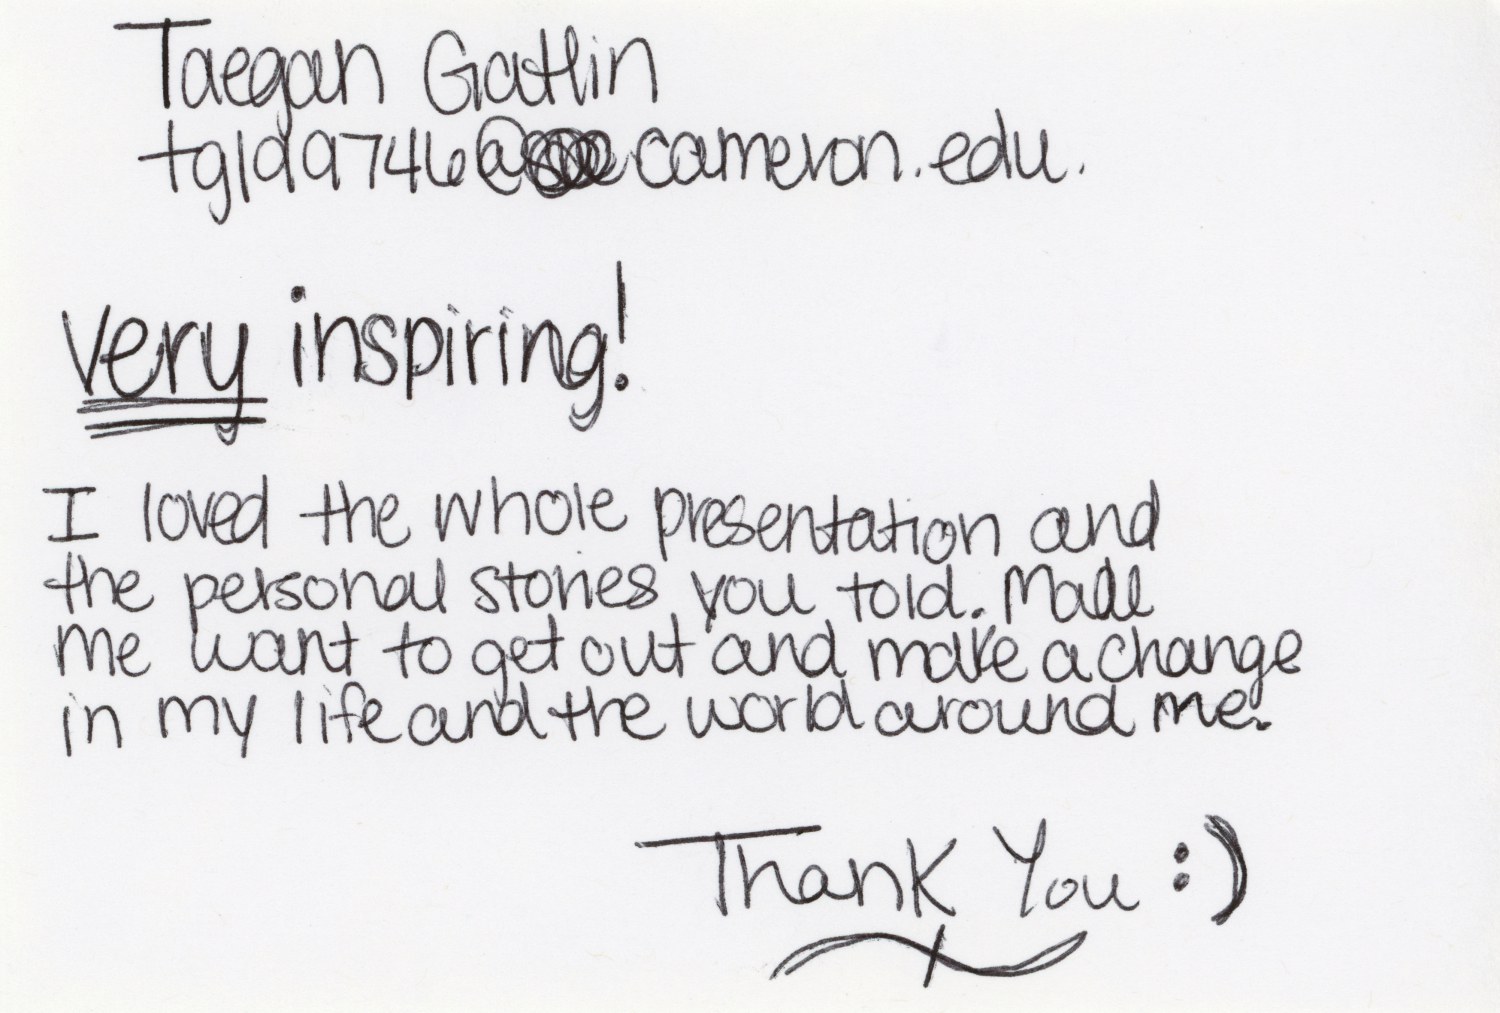 Taegan Gatlin
tg1d9746@cameron.edu.
very inspiring!
I loved the whole presentation and
the personal stories you told. Made
me want to get out and make a change
in my life and the world around me.
Thank You :)